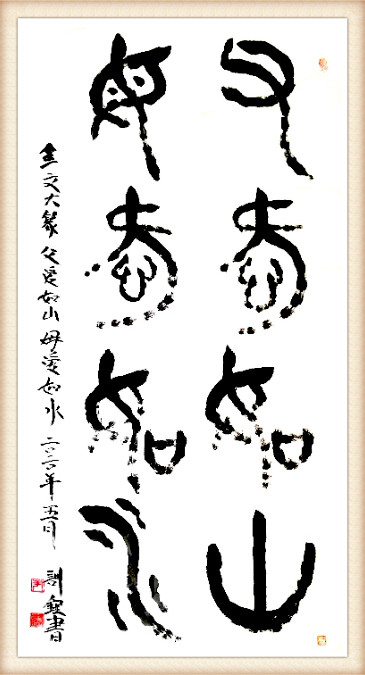 父爱如山
母爱如水
金文大篆 父爱如山 母爱如水 二〇二〇年五月